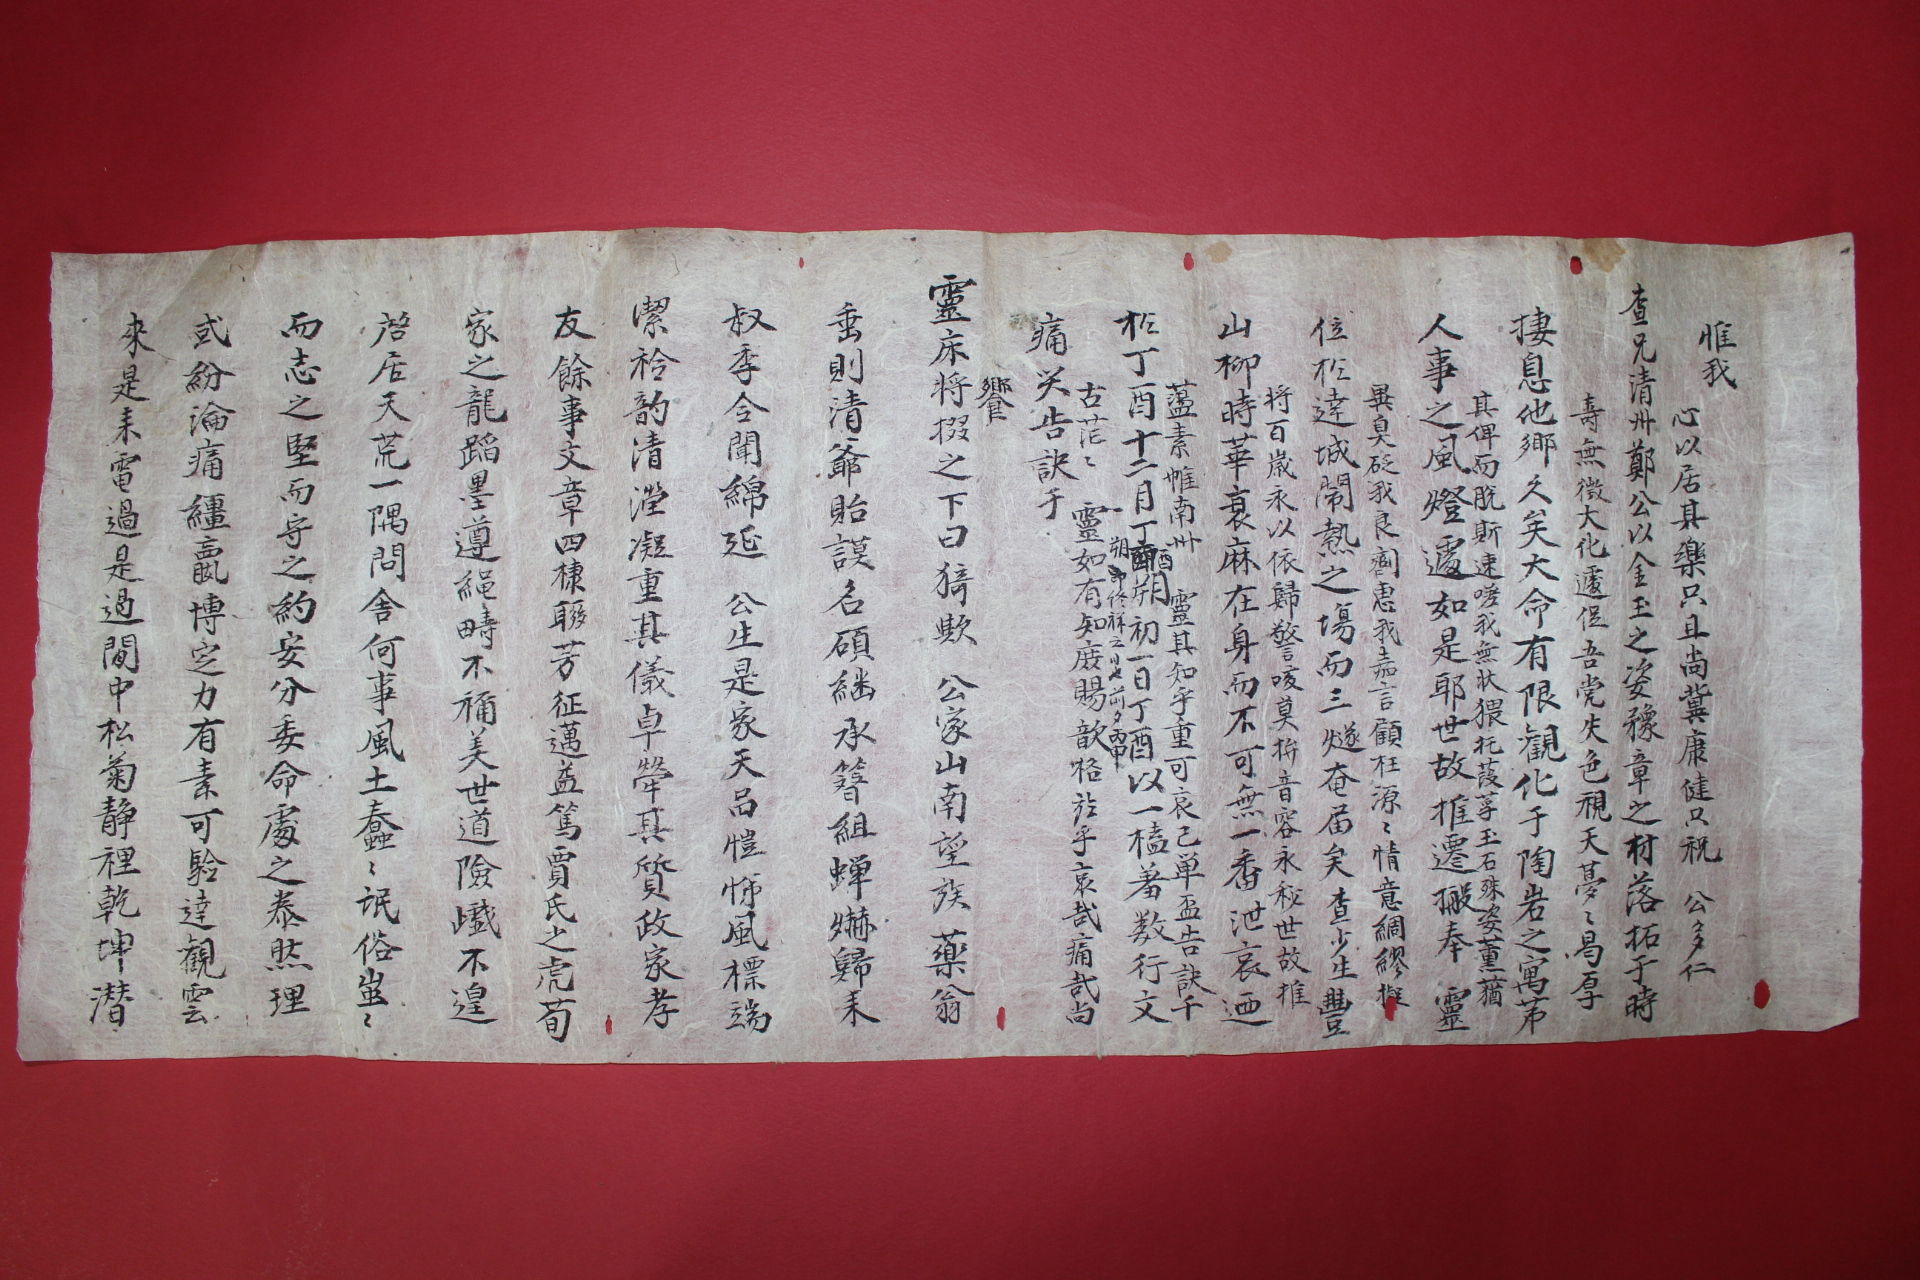 惟我
心以居其樂只且尚冀康健只祝 公多仁
查兄清州鄭公以金玉之姿豫章之材落拓于時
壽無徵大化遽促吾党失色視天夢〻曷厚
棲息他鄉久矣大命有限觀化于陶岩之寓第
其俾而脫斯速嗟我無狀猥托葭莩玉石殊姿薰蕕
人事之風燈遽如是耶世故推遷搬奉 靈
異臭砭我良劑惠我嘉言顧枉源〻情意綢繆擬
位於達城鬧熱之場而三燧奄届矣 查少生豊
將百歲永以依歸警咳莫拚音容永秘世故推
山柳時華衰麻在身而不可無一番泄哀迺
薀素帷南州 靈其知乎重可哀已單盃告訣千
於丁酉十二月丁酉朔初一日丁酉以一榼羞数行文
朔 即修祥之 前夕丙申
古茫〻 靈如有知庶賜歆格於乎哀哉痛哉尚
痛哭告訣于
饗
靈床將掇之下曰猗歟 公家山南望族 藥翁
垂則清爺貽謨名碩継承簪組蟬嚇歸来
叔季令聞綿延 公生是家天品愷悌風標端
潔衿韵清瀅凝重其儀卓犖其質政家孝
友餘事文章四棣聯芳征邁益篤賈氏之虎荀
家之龍蹈墨遵繩疇不称美世道險巇不遑
啓居天荒一隅問舍何事風土蠢〻氓俗蚩〻
而志之堅而守之約安分委命處之泰然理
或紛淪痛纏 博定力有素可驗達觀雲
來是来電過是過閒中松菊静裡乾坤潜